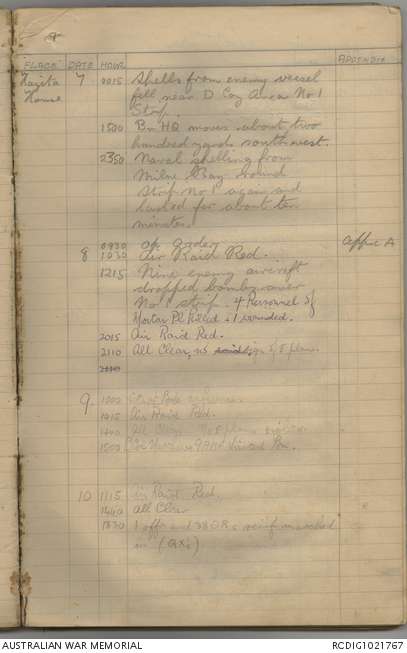 PLACE DATE HOUR APPENDIX
7 0015 Shells from enemy vessel
House fell near D Coy Area No 1
Strip.
1500 Bn HQ moves about two
hundred yards southwest.
2350 Naval shelling from
Milne Bay around
Strip No 1 again and
lasted for about ten
minutes.
8 0930 Op. Order Appx A
1030 Air Raid Red.
1215 Nine enemy aircraft
dropped bombs over
No 1 strip. 4 Personnel of
Mortar Pl killed & 1 wounded.
2015 Air Raid Red.
2110 All Clear, no sign of E plane.
9. 1200
1415 Air Raid Red.
1440 All Clear
1500
10 1115 Air Raid Red.
1440 All Clear
1830 1 offr and 38 ORs reinf marched
in (QX's)
AUSTRALIAN WAR MEMORIAL RCDIG1021767